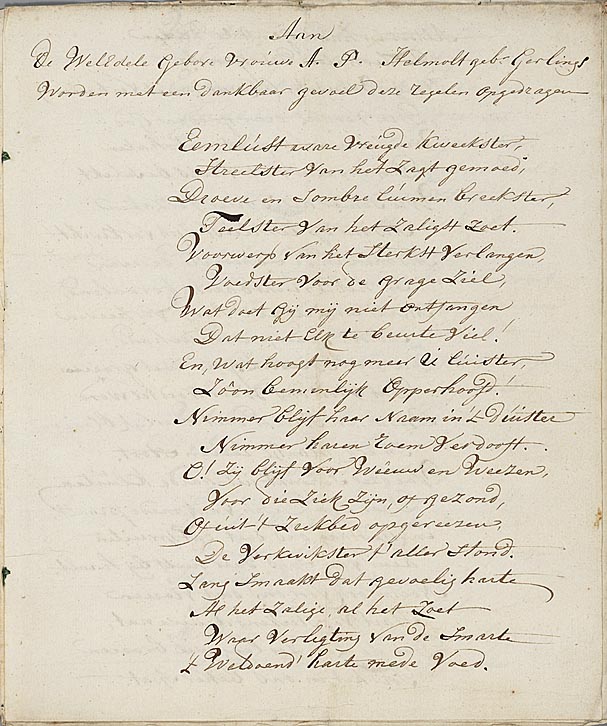 Aan
De WelEdele Gebore Vrouwe A. P. Halmolt geb. Gerlings
Worden met een dankbaar gevoel deze regelen opgedragen
Eenlúst ware Vreugde Kweekster,
Streelster Van het Zagt gemoed,
Droeve en Sombre lúimen breekster,
Teelster Van het Zaligst Zoet.
Voorwerp Van het Sterkst Verlangen,
Voedster Voor de grage Ziel,
Wat doet Gij mij niet ontfangen
Dat niet Elk te beurte Viel!
En, Wat hoogt nog meer U lúister,
Zóón beminlijk Opperhoofd!
Nimmer blijf haar Naam in 't Dúister
Nimmer haren roem Verdooft.
O! Zij blijf Voor Wéeuw en Weezen,
Voor die Ziek Zijn, of gezond,
Of uit 't Ziekbed opgereezen
De Verkwikster t' aller Stond.
Lang Smaakt dat gevoelig harte
Al het Zalige al het Zoet
Waar Verligting Van de Smarte
't Weldoend' harte mede Voed.